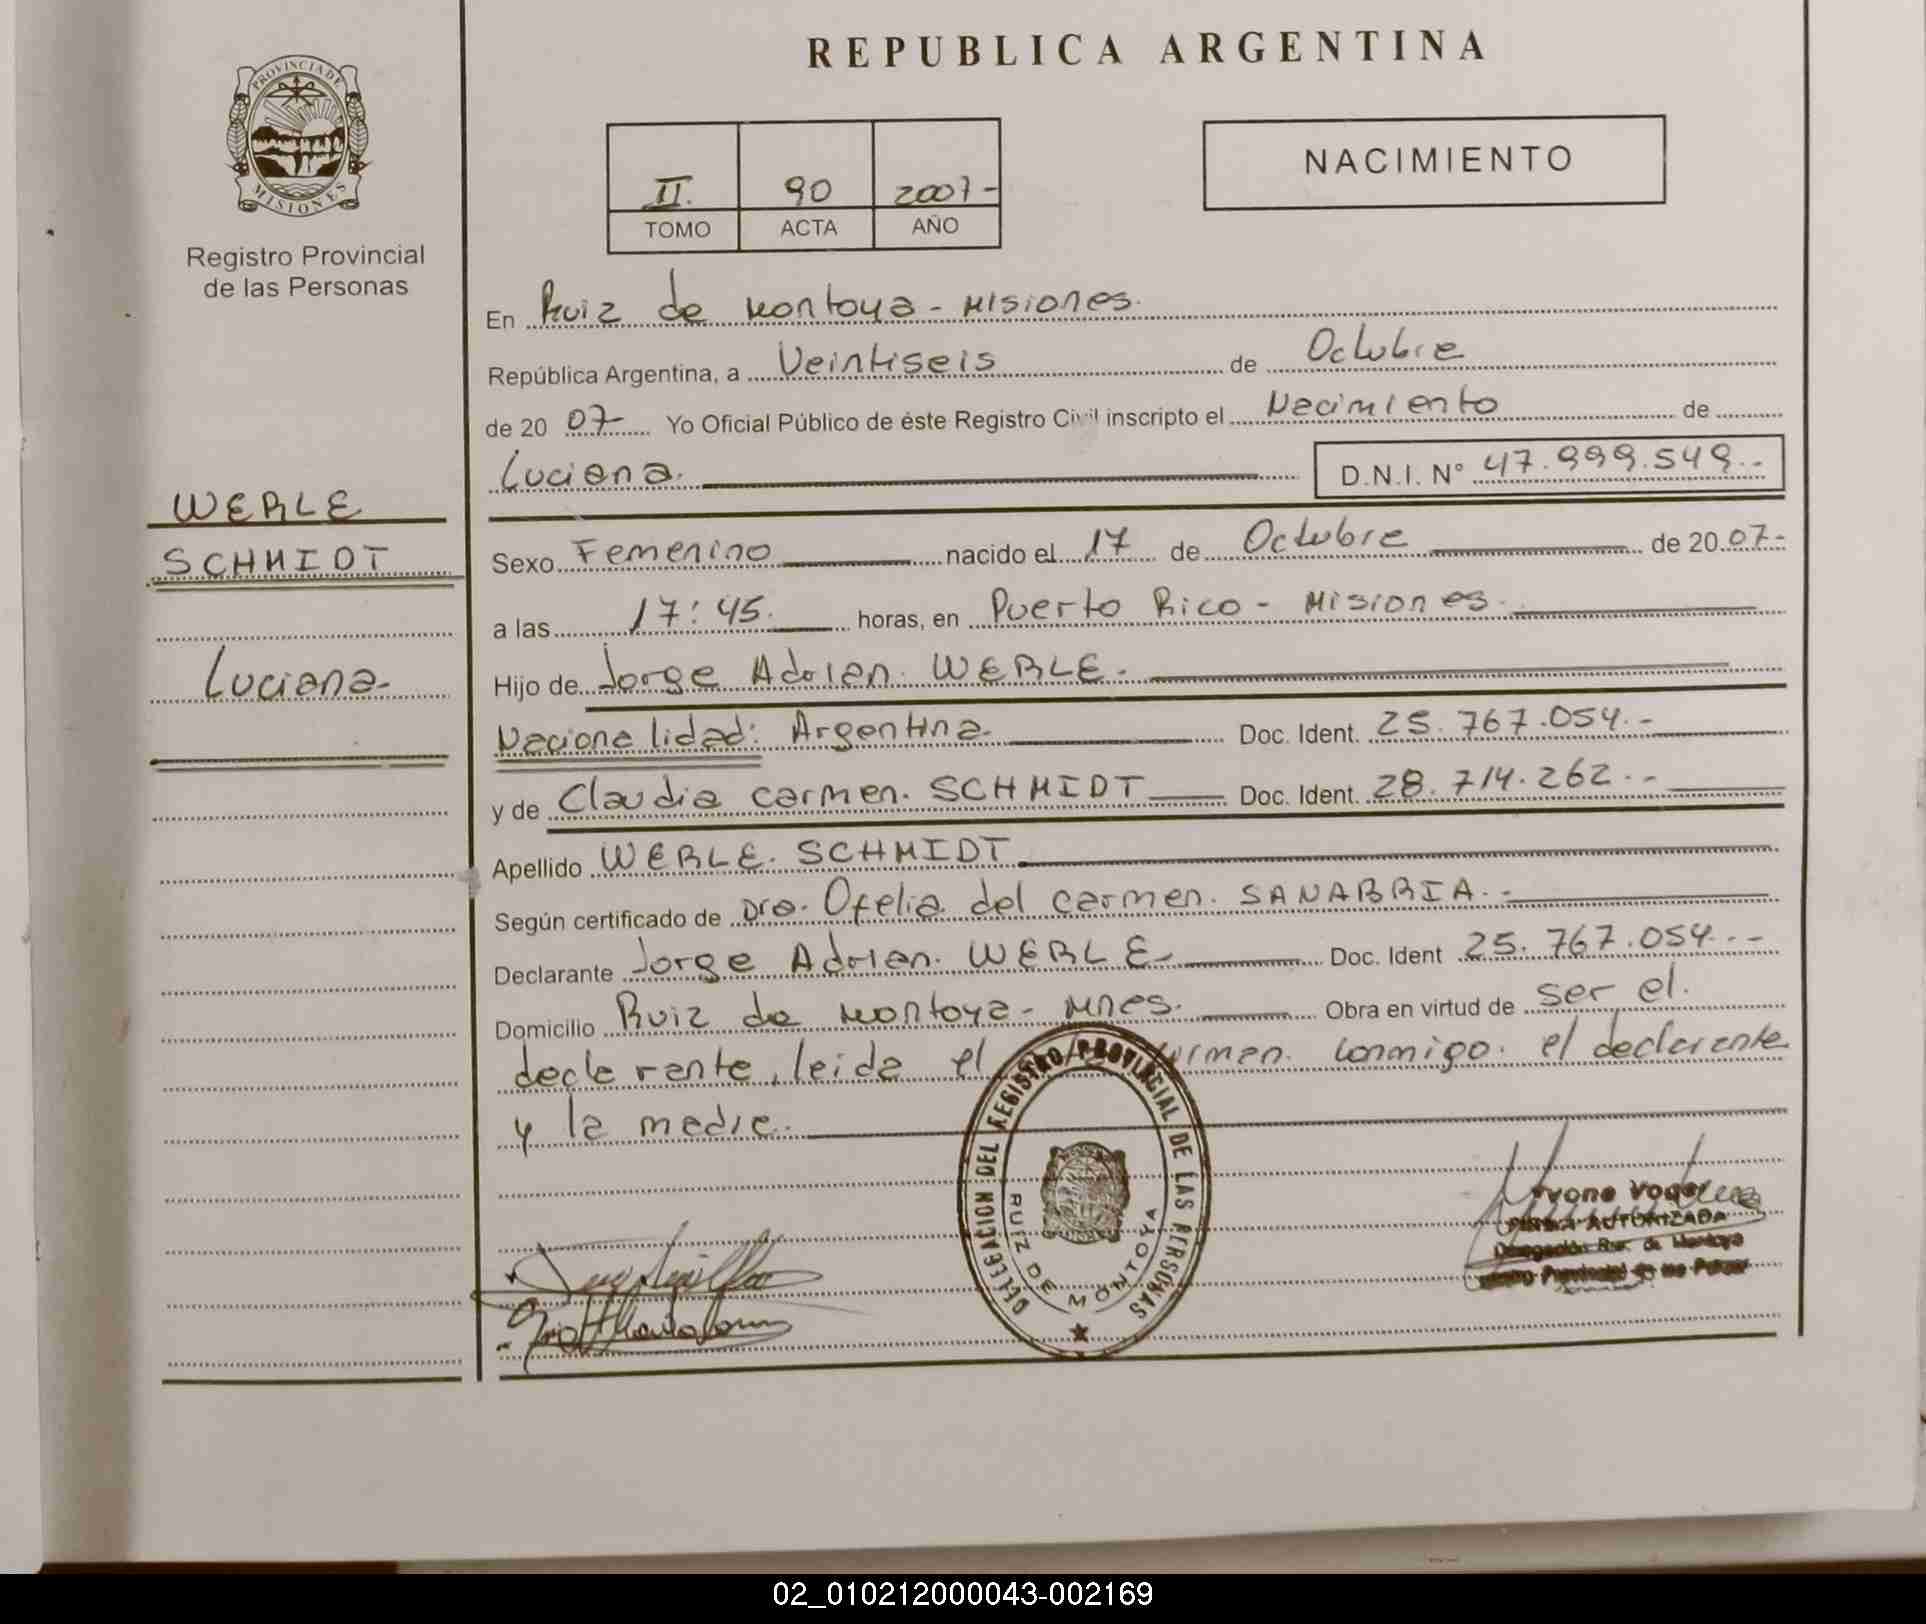 REPUBLICA ARGENTINA
PROVINCIA DE
MISIONES
Registro Provincial
de las Personas
II. 90 2007-
TOMO ACTA AÑO
NACIMIENTO
En Ruiz de Montoya - Misiones.
República Argentina, a Veintiseis de Octubre
de 20 07- Yo Oficial Público de éste Registro Civil inscripto el Nacimiento de
Luciana. D.N.I. N° 47.999.549.-
WERLE
SCHMIDT
Luciana-
Sexo Femenino nacido el 17 de Octubre de 20 07-
a las 17:45. horas, en Puerto Rico - Misiones.
Hijo de Jorge Adrian. WERLE.
Nacionalidad: Argentina. Doc. Ident. 25.767.054.-
y de Claudia Carmen. SCHMIDT Doc. Ident. 28.714.262.-
Apellido WERLE. SCHMIDT
Según certificado de Dra. Ofelia del Carmen. SANABRIA.-
Declarante Jorge Adrian. WERLE- Doc. Ident 25.767.054.-
Domicilio Ruiz de Montoya - Mnes. Obra en virtud de ser el.
declarante, leida el firman. Conmigo. el declarante
y la madre.
DELEGACION DEL REGISTRO PROVINCIAL DE LAS PERSONAS
RUIZ DE MONTOYA
FIRMA AUTORIZADA
Delegación Ruiz de Montoya
02_010212000043-002169